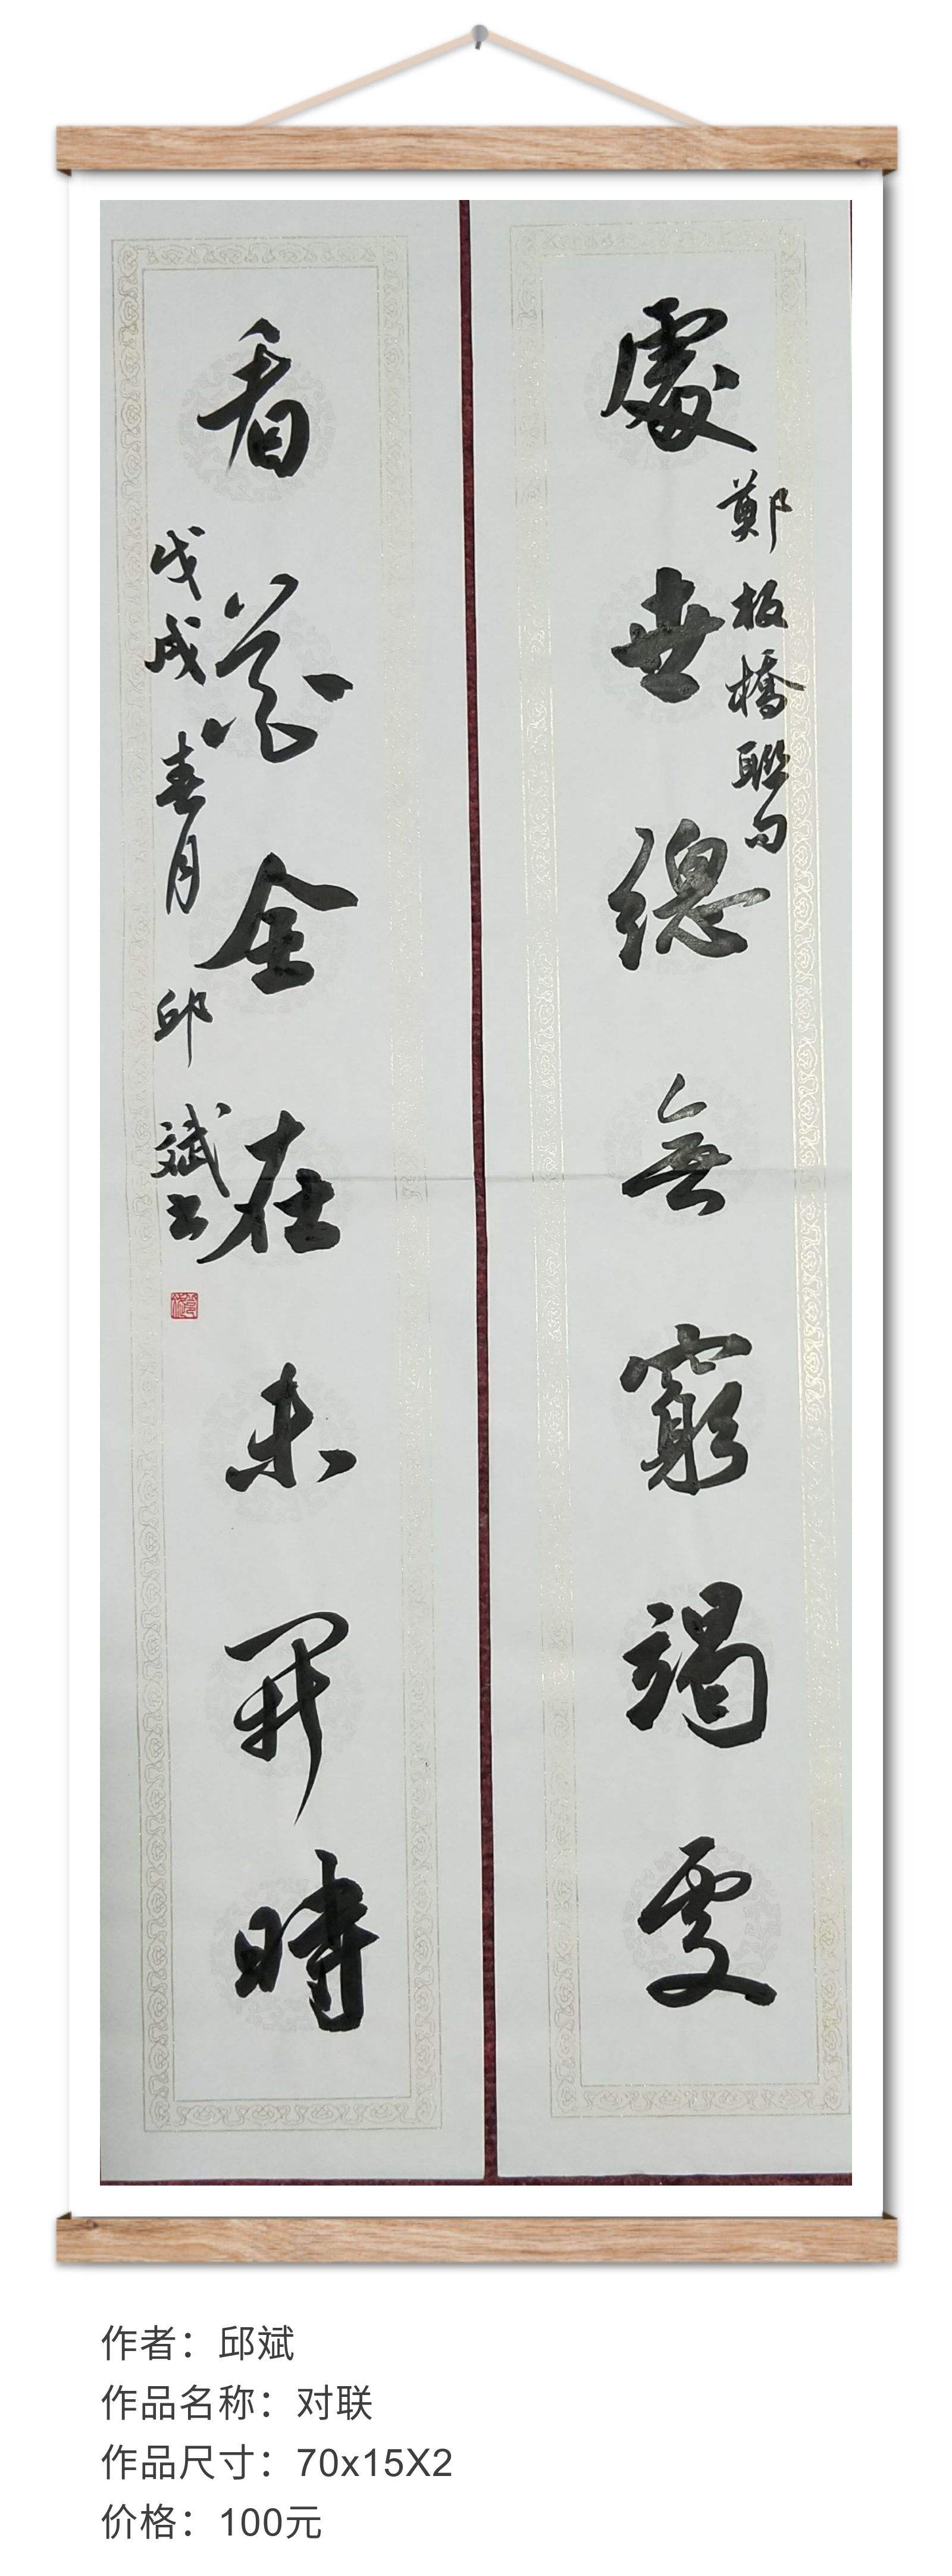 處世總無窮竭處
鄭板橋聯句
看花全在未開時
戊戌春月 邱斌书
作者：邱斌
作品名称：对联
作品尺寸：70x15X2
价格：100元